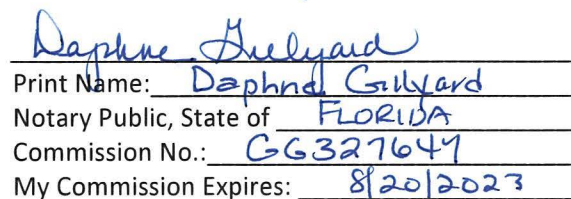 Daphne Gillyard
Print Name: Daphne Gillyard
Notary Public, State of FLORIDA
Commission No.: GG327647
My Commission Expires: 8/20/2023